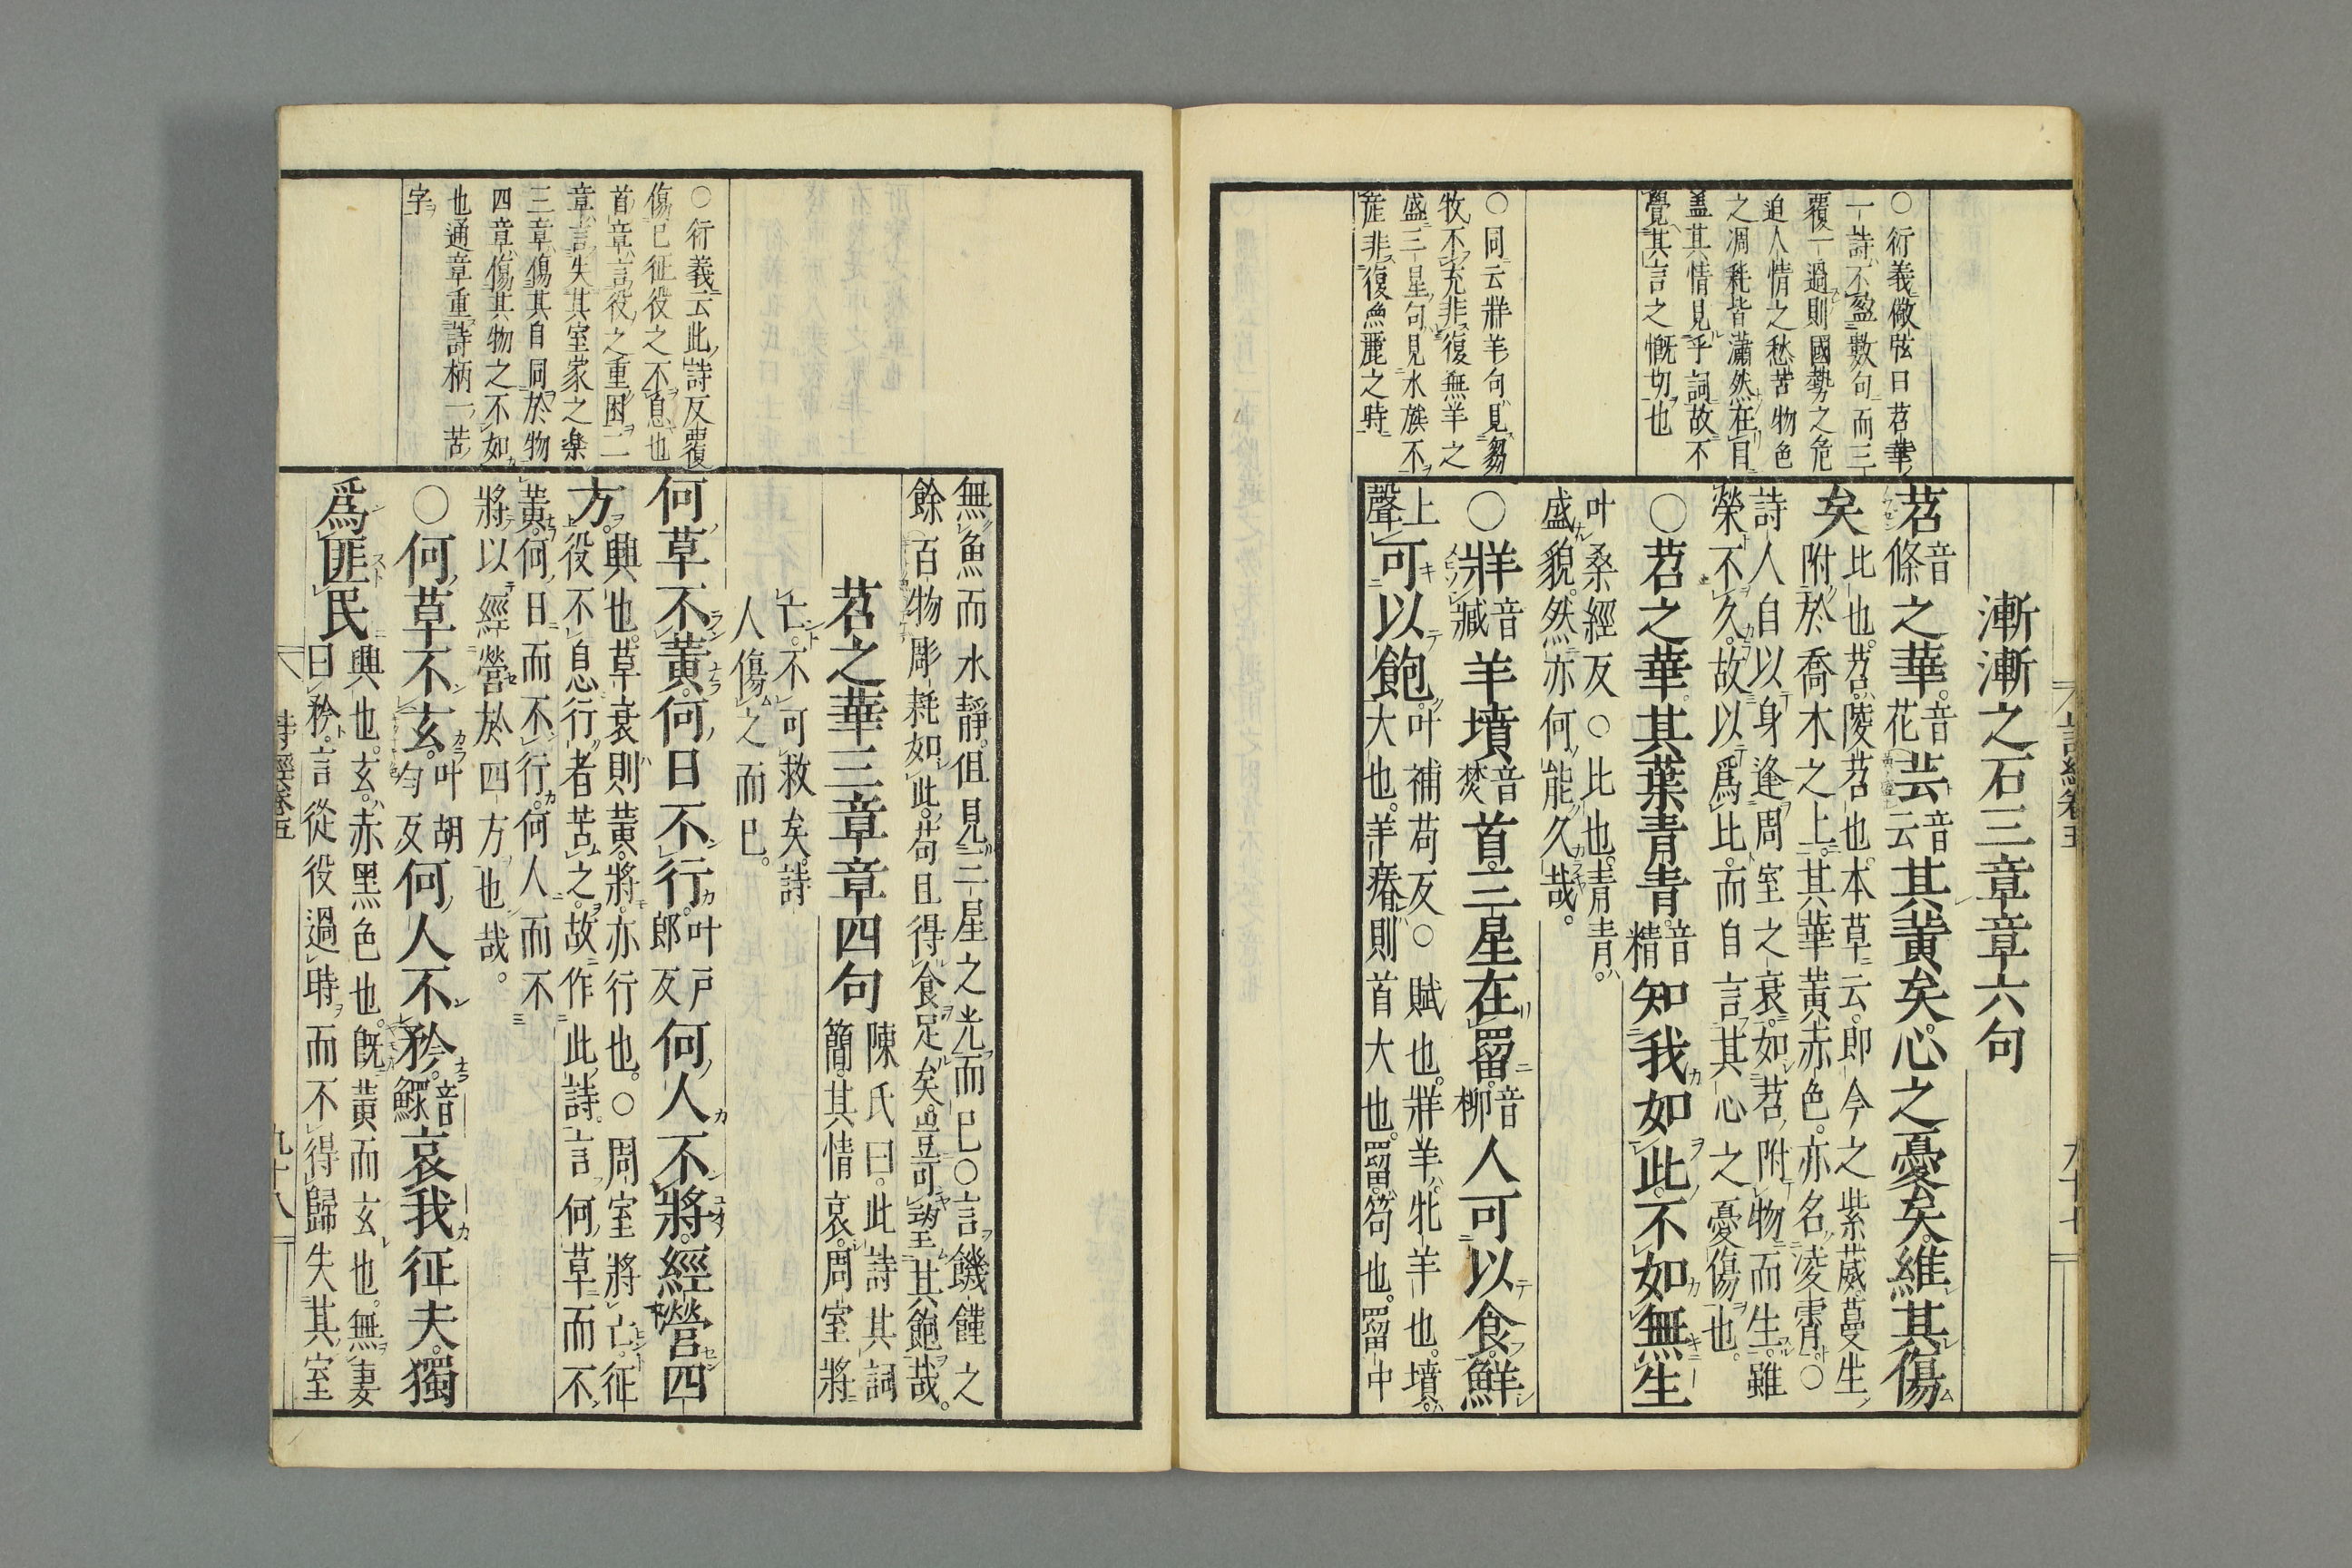 ○衍義儆弦曰苕華
一詩不盈數句而三
覆一過則國勢之危
迫人情之愁苦物色
之凋耗皆瀟然在目
蓋其情見乎詞故不
覺其言之慨切也
○同云牂羊句見芻
牧不充非復無羊之
盛三星句見水族不
旌非復魚麗之時
漸漸之石三章章六句
苕音條之華音花芸音云其黃矣心之憂矣維其傷
矣比也苕陵苕也本草云即今之紫葳蔓生
附於喬木之上其華黃赤色亦名凌霄○
詩人自以身逢周室之衰如苕附物而生雖
榮不久故以爲比而自言其心之憂傷也
○苕之華其葉青青音精知我如此不如無生
叶桑經反○比也青青
盛貌然亦何能久哉
○牂音臧羊墳音焚首三星在罶音柳人可以食鮮
上聲可以飽叶補苟反○賦也牂羊牝羊也墳
大也羊瘠則首大也罶笱也罶中
無魚而水靜但見三星之光而已○言饑饉之
餘百物彫耗如此苟且得食足矣豈可望其飽哉
苕之華三章章四句陳氏曰此詩其詞
簡其情哀周室將
亡不可救矣詩
人傷之而已
○衍義云此詩反覆
傷已征役之不息也
首章言役之重困二
章言失其室家之樂
三章傷其自同於物
四章傷其物之不如
也通章重詩柄一苦
字
何草不黃何日不行叶戶郎反何人不將經營四
方興也草衰則黃將亦行也○周室將亡征
役不息行者苦之故作此詩言何草而不
黃何日而不行何人而不
將以經營於四方也哉
○何草不玄叶胡匀反何人不矜音鰥哀我征夫獨
爲匪民興也玄赤黑色也既黃而玄也無妻
曰矜言從役過時而不得歸失其室
詩經卷五
九十八